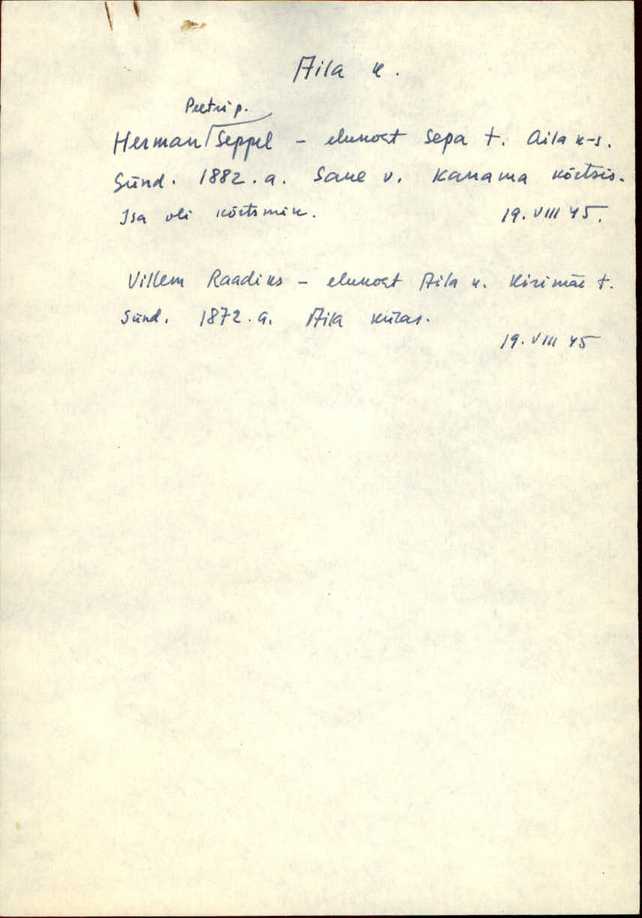 Aila k.
Peetri p.
Herman Seppel – elukoht Sepa t. Aila k-s.
Sünd. 1882.a. Saue v. Kanama kõrtsis.
Isa oli kõrtsmik. 19. VIII 45.
Villem Raadiks – elukoht Aila k. Kirimäe t.
Sünd. 1872.a. Aila külas.
19. VIII 45